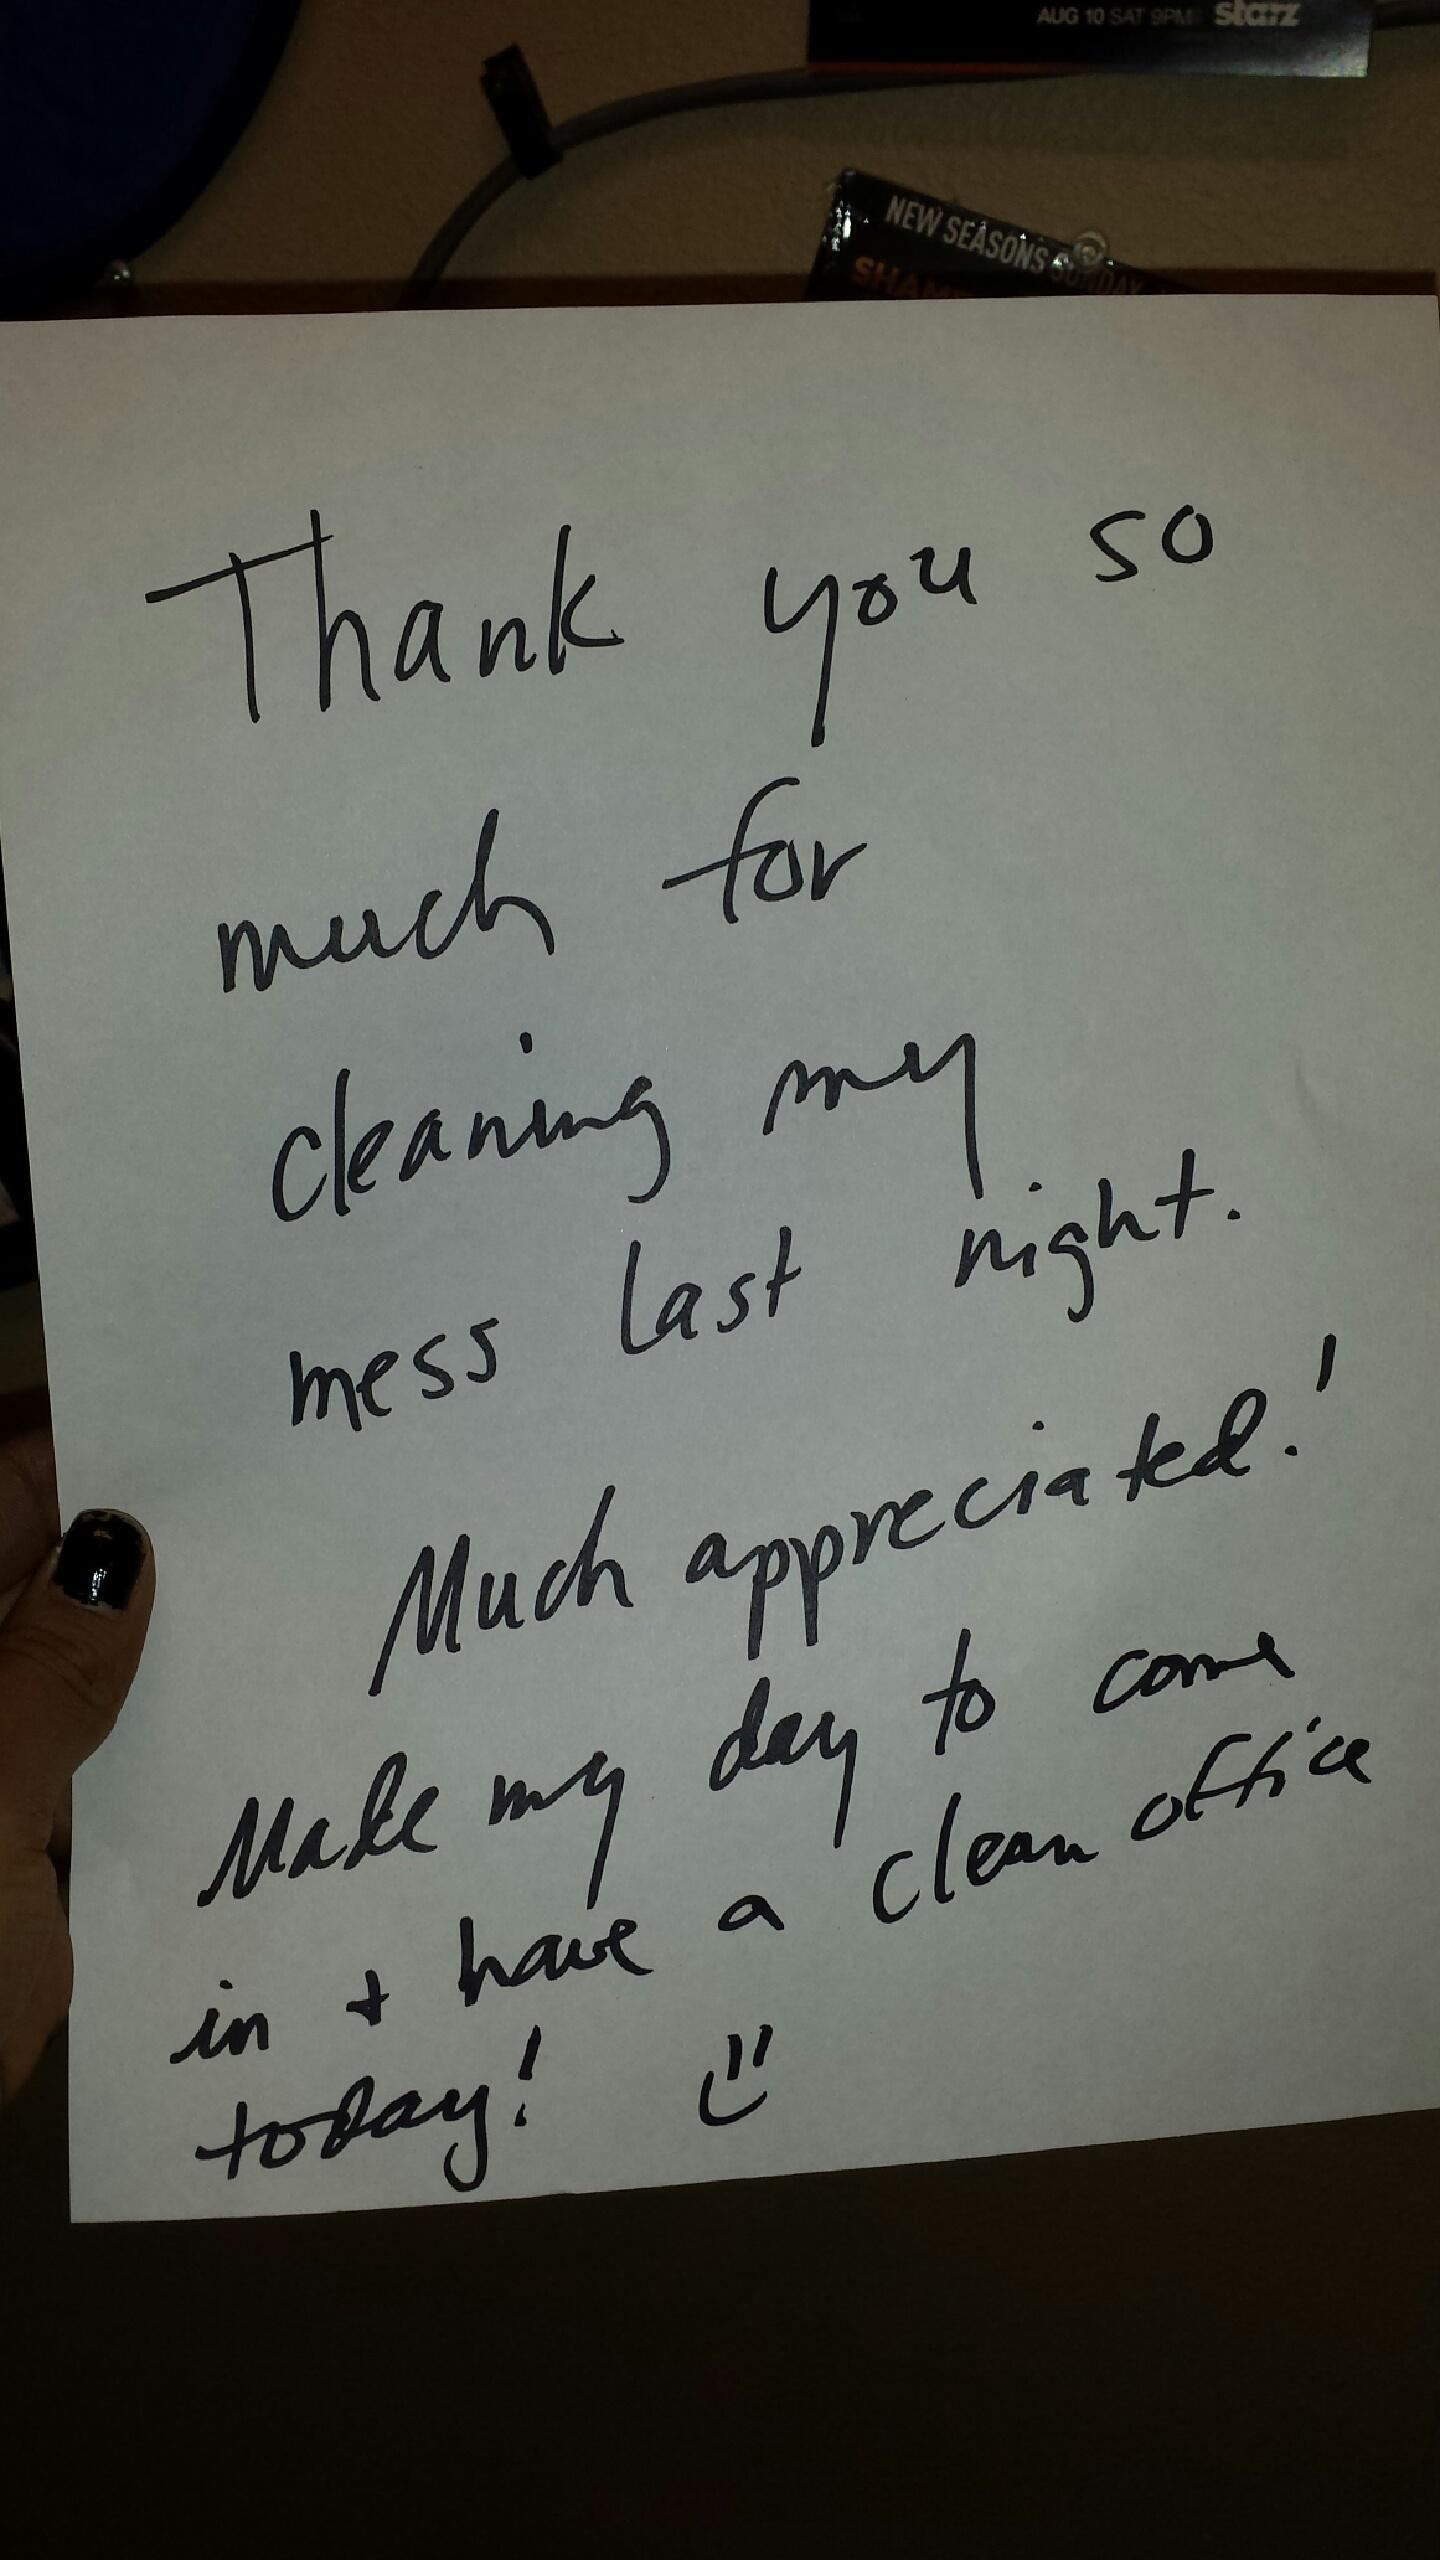 AUG 10 SAT 9PM starz
NEW SEASONS SUNDAY
Thank you so
much for
cleaning my
mess last night.
Much appreciated!
Made my day to come
in + have a clean office
today!